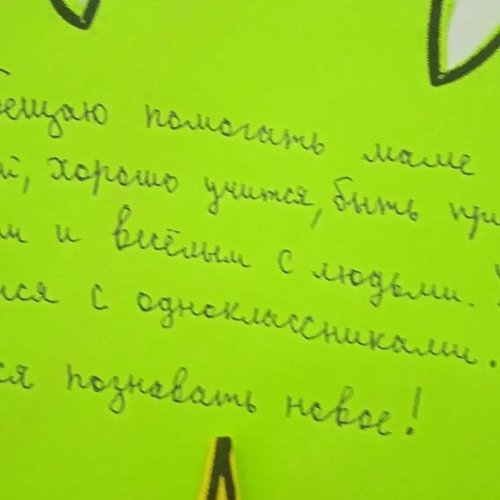 помогать маме
хорошо учится, быть
и весёлым с людьми.
с одноклассниками.
познавать новое!